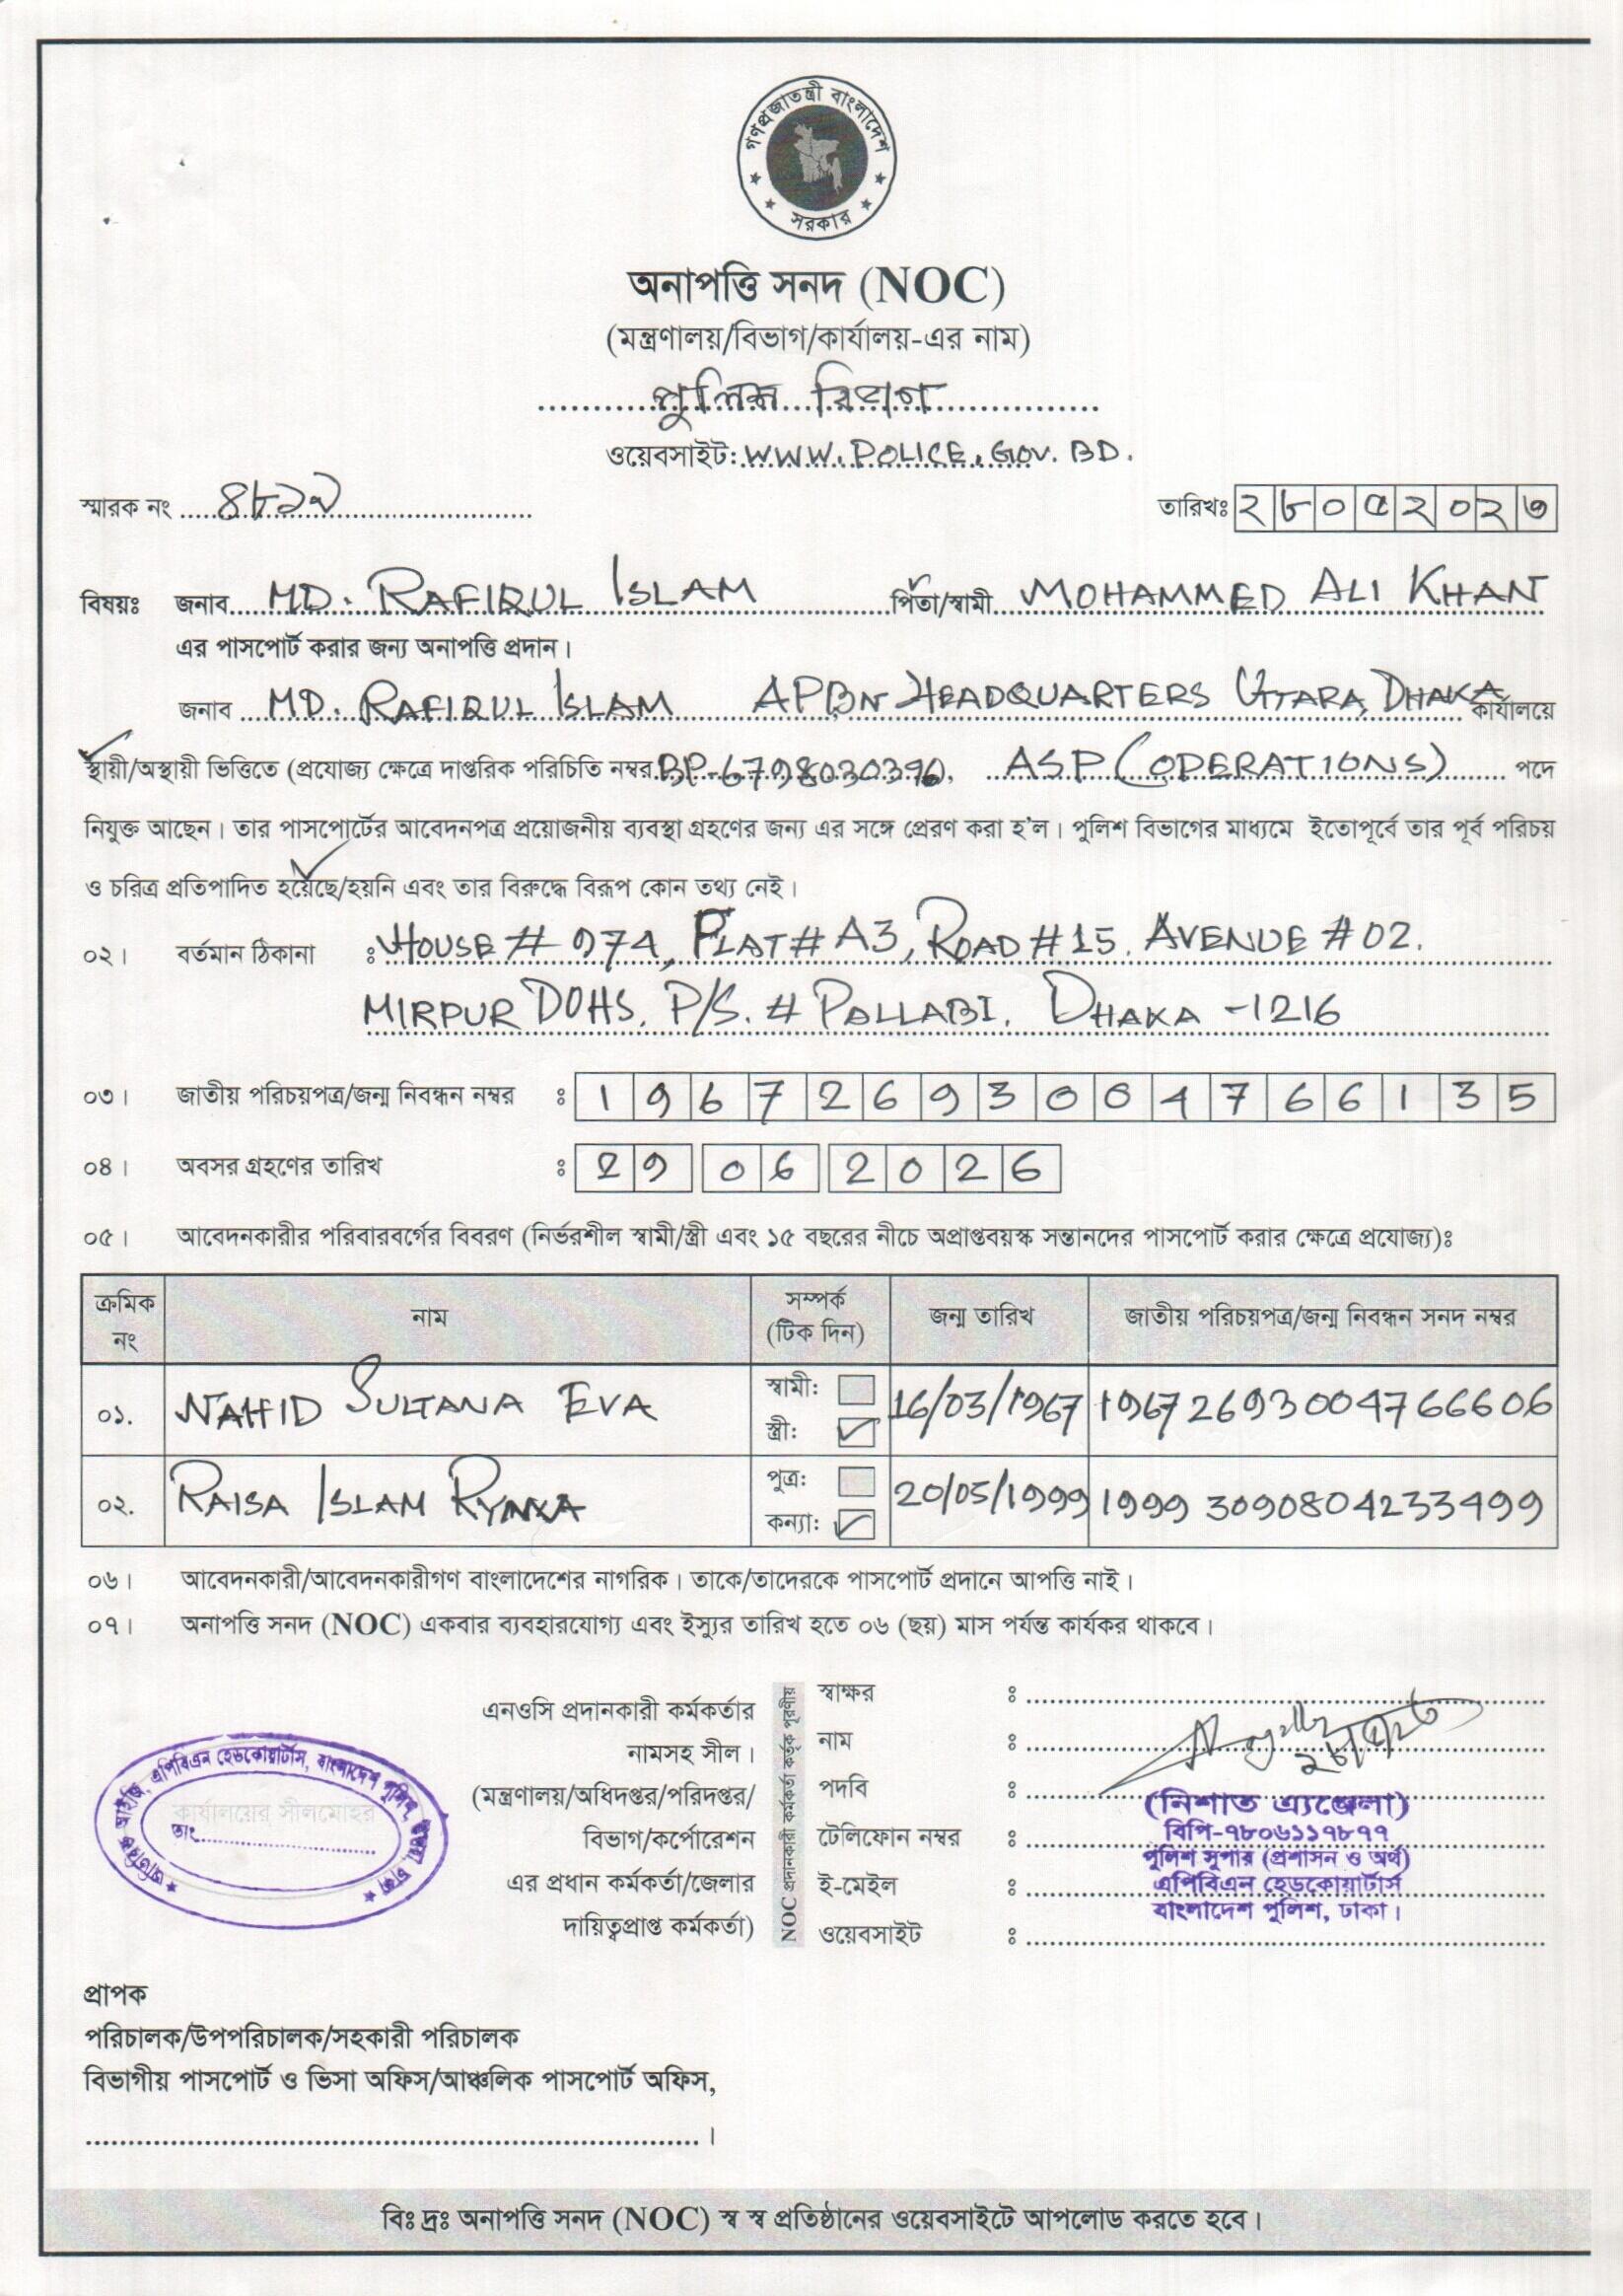 গণপ্রজাতন্ত্রী বাংলাদেশ
সরকার
অনাপত্তি সনদ (NOC)
(মন্ত্রণালয়/বিভাগ/কার্যালয়-এর নাম)
পুলিশ বিভাগ
ওয়েবসাইট: WWW.POLICE.GOV.BD.
স্মারক নং ৪৮১৯
তারিখঃ ২৮০৫২০২৩
বিষয়ঃ জনাব MD. RAFIQUL ISLAM পিতা/স্বামী MOHAMMED ALI KHAN
এর পাসপোর্ট করার জন্য অনাপত্তি প্রদান।
জনাব MD. RAFIQUL ISLAM APBN HEADQUARTERS UTTARA, DHAKA কার্যালয়ে
স্থায়ী/অস্থায়ী ভিত্তিতে (প্রযোজ্য ক্ষেত্রে দাপ্তরিক পরিচিতি নম্বর BP-6798030396), ASP (OPERATIONS) পদে
নিযুক্ত আছেন। তার পাসপোর্টের আবেদনপত্র প্রয়োজনীয় ব্যবস্থা গ্রহণের জন্য এর সঙ্গে প্রেরণ করা হ'ল। পুলিশ বিভাগের মাধ্যমে ইতোপূর্বে তার পূর্ব পরিচয়
ও চরিত্র প্রতিপাদিত হয়েছে/হয়নি এবং তার বিরুদ্ধে বিরূপ কোন তথ্য নেই।
০২। বর্তমান ঠিকানা : HOUSE # 974, FLAT # A3, ROAD # 15. AVENUE # 02.
MIRPUR DOHS. P/S. # PALLABI. DHAKA -1216
০৩। জাতীয় পরিচয়পত্র/জন্ম নিবন্ধন নম্বর ঃ 19672693004766135
০৪। অবসর গ্রহণের তারিখ ঃ 29 06 2026
০৫। আবেদনকারীর পরিবারবর্গের বিবরণ (নির্ভরশীল স্বামী/স্ত্রী এবং ১৫ বছরের নীচে অপ্রাপ্তবয়স্ক সন্তানদের পাসপোর্ট করার ক্ষেত্রে প্রযোজ্য)ঃ
ক্রমিক নং নাম সম্পর্ক (টিক দিন) জন্ম তারিখ জাতীয় পরিচয়পত্র/জন্ম নিবন্ধন সনদ নম্বর
০১. NAHID SULTANA EVA স্বামী: স্ত্রী: 16/03/1967 19672693004766606
০২. RAISA ISLAM RYNKA পুত্র: কন্যা: 20/05/1999 19993090804233499
০৬। আবেদনকারী/আবেদনকারীগণ বাংলাদেশের নাগরিক। তাকে/তাদেরকে পাসপোর্ট প্রদানে আপত্তি নাই।
০৭। অনাপত্তি সনদ (NOC) একবার ব্যবহারযোগ্য এবং ইস্যুর তারিখ হতে ০৬ (ছয়) মাস পর্যন্ত কার্যকর থাকবে।
এনওসি প্রদানকারী কর্মকর্তার
নামসহ সীল।
(মন্ত্রণালয়/অধিদপ্তর/পরিদপ্তর/
বিভাগ/কর্পোরেশন
এর প্রধান কর্মকর্তা/জেলার
দায়িত্বপ্রাপ্ত কর্মকর্তা)
NOC প্রদানকারী কর্মকর্তা কর্তৃক পূরণীয়
স্বাক্ষর ঃ
নাম ঃ
পদবি ঃ
টেলিফোন নম্বর ঃ
ই-মেইল ঃ
ওয়েবসাইট ঃ
(নিশাত এ্যঞ্জেলা)
বিপি-৭৮০৬১১৭৮৭৭
পুলিশ সুপার (প্রশাসন ও অর্থ)
এপিবিএন হেডকোয়ার্টার্স
বাংলাদেশ পুলিশ, ঢাকা।
আইজি, এপিবিএন হেডকোয়ার্টার্স, বাংলাদেশ পুলিশ, ঢাকা
কার্যালয়ের সীলমোহর
তাং
প্রাপক
পরিচালক/উপপরিচালক/সহকারী পরিচালক
বিভাগীয় পাসপোর্ট ও ভিসা অফিস/আঞ্চলিক পাসপোর্ট অফিস,
বিঃ দ্রঃ অনাপত্তি সনদ (NOC) স্ব স্ব প্রতিষ্ঠানের ওয়েবসাইটে আপলোড করতে হবে।